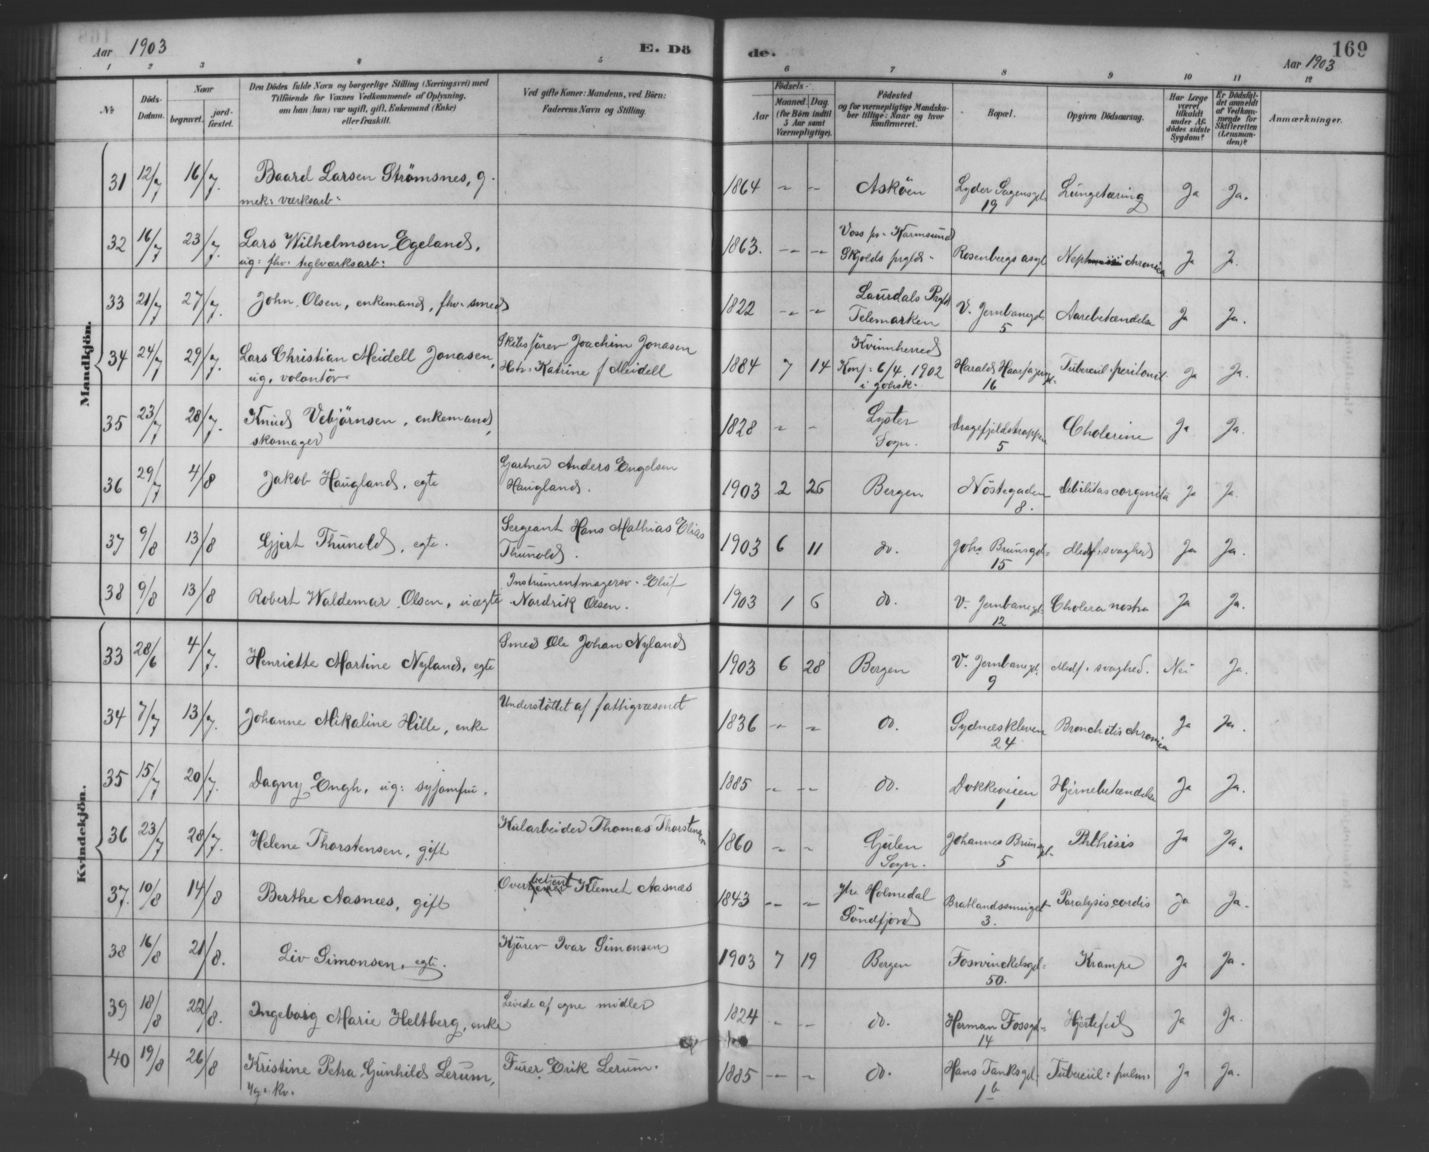 Aar 1903
E. Dö
de.
169
Aar 1903
1 2 3 4 5 6 7 8 9 10 11 12
No
Döds-Datum.
Naar
begravet.
jord-fæstet.
Den Dödes fulde Navn og borgerlige Stilling (Næringsvei) med
Tilföiende for Voxnes Vedkommende af Oplysning,
om han (hun) var ugift, gift, Enkemand (Enke)
eller fraskilt.
Ved gifte Koner: Mandens, ved Börn:
Faderens Navn og Stilling.
Födsels-
Aar
Maaned Dag
(for Börn indtil
5 Aar samt
Værnepligtige).
Födested
og for værnepligtige Mandska-
ber tillige: Naar og hvor
konfirmeret.
Bopæl.
Opgiven Dödsaarsag.
Har Læge
været
tilkaldt
under Af-
dödes sidste
Sygdom?
Er Dödsfal-
det anmeldt
af Vedkom-
mende for
Skifteretten
(Lensman-
den)?
Anmærkninger.
Mandkjön.
31 12/7 16/7. Baard Larsen Strömsnes, g. 1864 " " Asköen Lyder Sagensgd. Lungetæring Ja Ja.
mek: værksarb: 19
32 16/7 23/7. Lars Wilhelmsen Egeland, 1863. " " Voss pr. Karmsund Rosenbergs asyl chronica Ja J.
ug: fhv. teglværksarb: Skjolds prgld.
33 21/7 27/7. John Olsen, enkemand, fhv. smed 1822 " " Laurdals Prgld V. Jernbanegd. Aarebetændelse Ja Ja.
Telemarken 5
34 24/7 29/7. Lars Christian Meidell Jonasen, Skibsförer Joachim Jonasen 1884 7 14 Kvinnherred Harald Haarfagregd. Tubercul: peritonit. Ja Ja.
ug. volontör Hstr. Katrine f Meidell Konf: 6/4. 1902 16
35 23/7 28/7. Knud Vebjörnsen, enkemand, 1828 " " Lyster Dragefjeldstrappen Cholerine Ja Ja.
skomager Sogn. 5
36 29/7 4/8 Jakob Haugland, egte Gartner Anders Engelsen 1903 2 26 Bergen Nöstegaden debilitas congenita Ja Ja.
Haugland. 8.
37 9/8 13/8 Gjert Thunold, egte. Sergeant Hans Mathias Elias 1903 6 11 do. Johs Brunsgd. Medf. svaghed Ja Ja.
Thunold. 15
38 9/8 13/8 Robert Waldemar Olsen, uægte Instrumentmagersv. Eluf 1903 1 6 do. V. Jernbanegd. Cholera nostra Ja Ja.
Nordrik Olsen. 12
Kvindekjön.
33 28/6 4/7. Henriette Martine Nyland, egte Smed Ole Johan Nyland 1903 6 28 Bergen V. Jernbanegd. Medf. svaghed. Nei Ja.
9
34 7/7 13/7. Johanne Mikaline Hille, enke Understöttet af fattigvæsenet 1836 " " do. Sydneskleven Bronchitis chronica Ja Ja.
24
35 15/7 20/7. Dagny Engh, ug: syjomfru. 1885 " " do. Dokkeveien Hjernebetændelse Ja Ja.
1
36 23/7 28/7. Helene Thorstensen, gift Kularbeider Thomas Thorstensen 1860 " " Gulen Johannes Brunsgd. Phthisis Ja Ja.
Sogn. 5
37. 10/8 14/8 Berthe Aasnæs, gift Overbetjent Klemet Aasnæs 1843 " " Ytre Holmedal Bratlandssmuget Paralysis cordis Ja Ja.
Söndfjord 3.
38 16/8 21/8. Liv Simonsen, egte. Kjörer Ivar Simonsen 1903 7 19 Bergen Fosswinckelsgd. Krampe Ja Ja.
50.
39 18/8 22/8. Ingeborg Marie Heltberg, enke Levede af egne midler 1824 " " do. Herman Fossgd. Hjertefeil Ja Ja.
14
40 19/8 26/8 Kristine Petra Gunhild Lerum, Furer Erik Lerum. 1885 " " do. Hans Tanksgd. Tubercul: pulm: Ja Ja.
1b